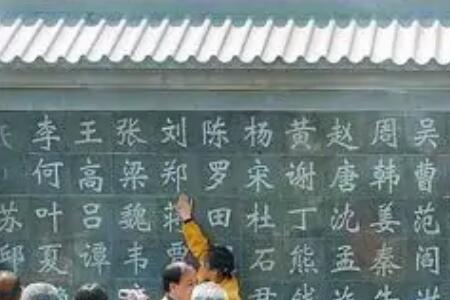 李王张刘陈杨黄赵周吴
何高梁郑罗宋谢唐韩曹
苏叶吕魏蒋田杜丁沈姜范
邱夏谭韦石熊孟秦阎